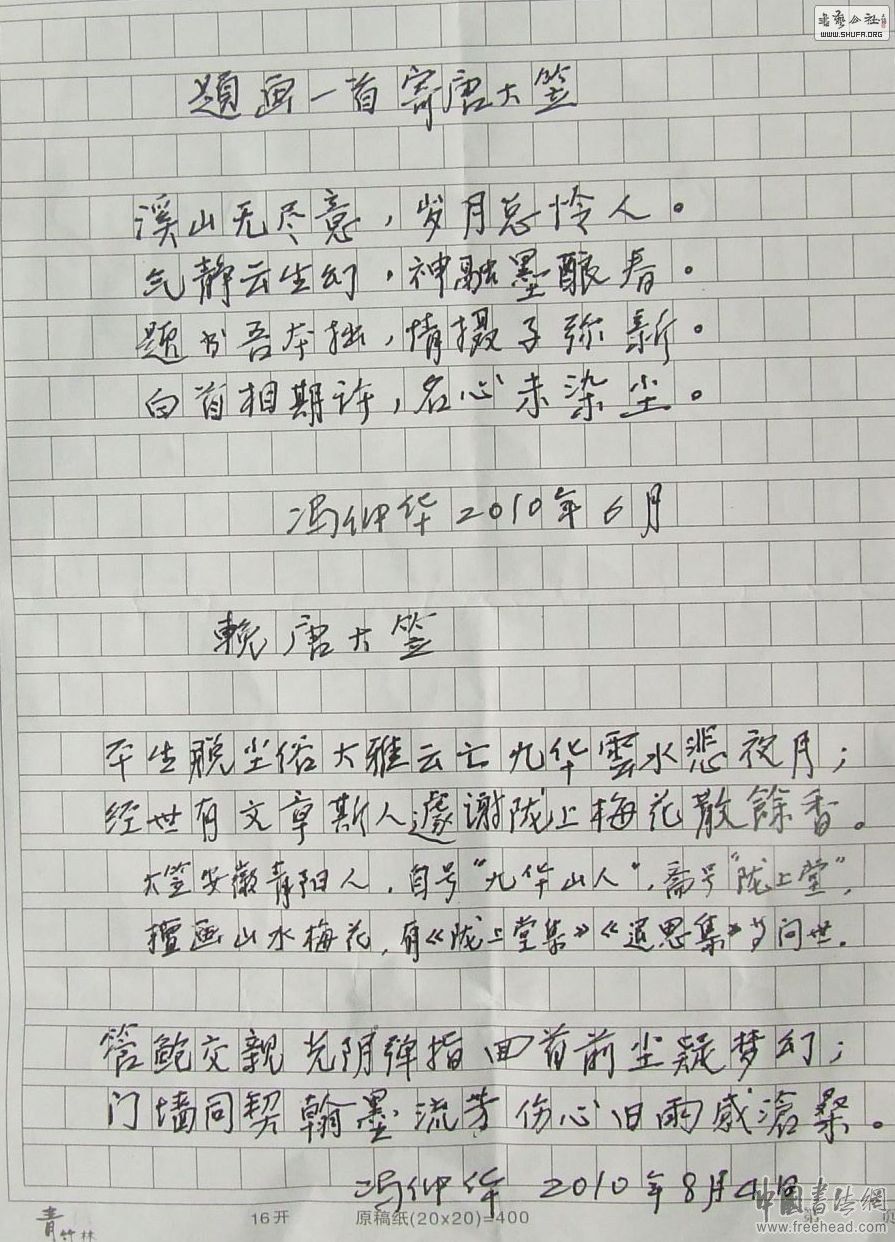 書艺公社
WWW.SHUFA.ORG
題画一首寄唐大笠
溪山无尽意，岁月总怜人。
气静云生幻，神融墨酿春。
题书吾本拙，情摄子弥新。
白首相期许，名心未染尘。
冯仲华 2010年6月
輓唐大笠
平生脱尘俗大雅云亡九华雲水悲夜月；
经世有文章斯人遽谢陇上梅花散餘香。
大笠安徽青阳人，自号“九华山人”，斋号“陇上堂”，
擅画山水梅花，有《陇上堂集》《退思集》等问世。
管鲍交親光阴弹指回首前尘疑梦幻；
门墙同契翰墨流芳伤心旧雨感滄桑。
冯仲华 2010年8月4日
青竹林 16开 原稿纸(20x20)=400 第 页
中國書法網
www.freehead.com